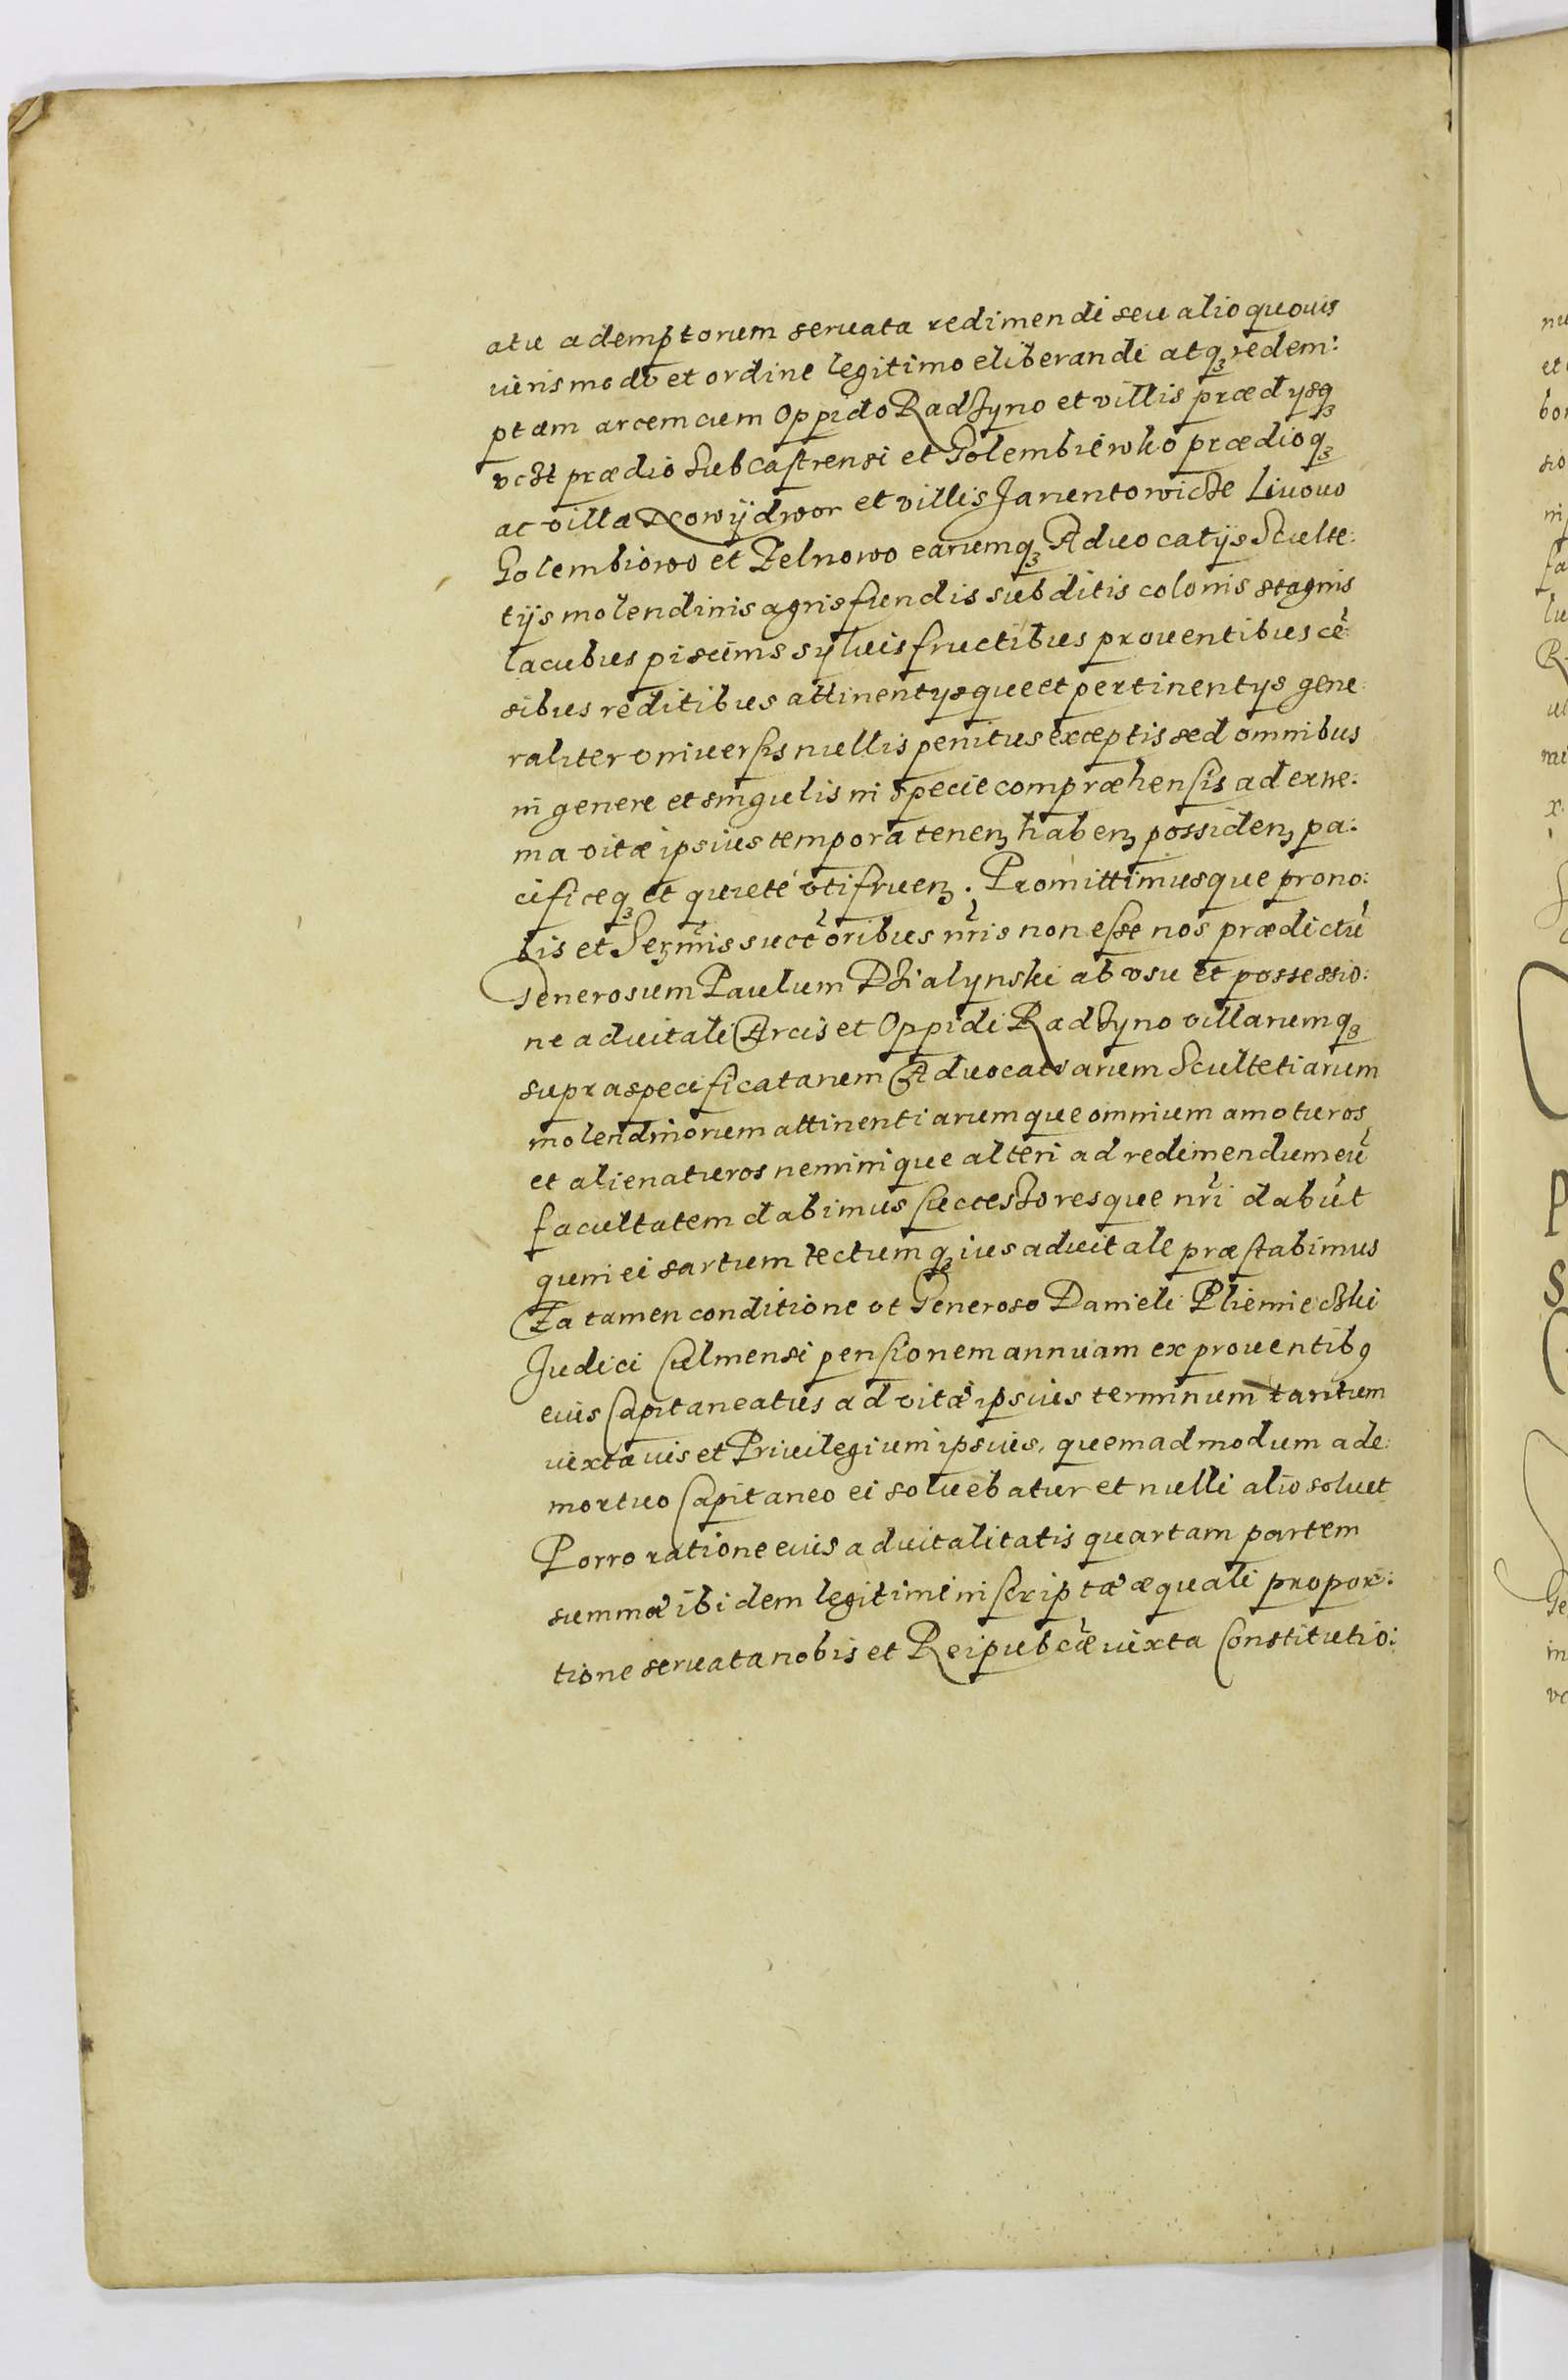 atu ademptorum seruata redimendi seu alio quouis
iuris modo et ordine legitimo eliberandi atqꝫ redem:
ptam arcem cum Oppido Radzyno et villis prædysqꝫ
vczt prædio Subcastrensi et Golembiewko prædioqꝫ
ac villa Nowÿdwor et villis Janentowicze Liuouo
Golembiowo et Zelnowo earumqꝫ Aduocatÿs Sculte:
tÿs molendinis agris fundis subditis colonis stagnis
lacubus piscims syluis fructibus prouentibus cẽ:
sibus reditibus attinentys que et pertinentys gene:
raliter vniuersis nullis penitus exceptis sed omnibus
in genere et singulis in specie compræhensis ad extre:
ma vitæ ipsius tempora tenenꝫ habenꝫ possidenꝫ pa:
cificeqꝫ et quieté vtifruenꝫ. Promittimusque prono:
bis et Serm̃is succ̃oribus nr̃is non esse nos prædictũ
Generosum Paulum Dzialynski ab vsu et possessio:
ne aduitali Arcis et Oppidi Radzyno villarumqꝫ
supraspecificatarum Aduocatiarum Scultetiarum
molendinorum attinentiarumque omnium amoturos
et alienaturos neminique alteri ad redimendum eũ
facultatem dabimus successoresque nr̃i dabũt
quin ei sartum tectumqꝫ ius aduitale præstabimus
Ea tamen conditione vt Generoso Danieli Pliemieczki
Judici Culmensi pensionem annuam ex prouentibꝯ
euis Capitaneatus ad vitæ ipsius terminum tantum
iuxta ius et Priuilegium ipsius, quemadmodum a de:
mortuo Capitaneo ei soluebatur et nulli alio soluet
Porro ratione euis aduitalitatis quartam partem
summæ ibidem legitimé inscriptæ æquali propor:
tione seruata nobis et Reipubcæ̃ iuxta Constitutio: